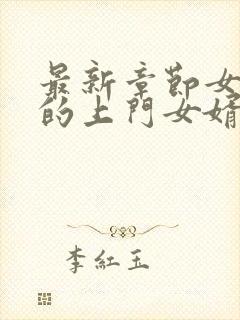 最新章節女
的上門女婿
李紅玉